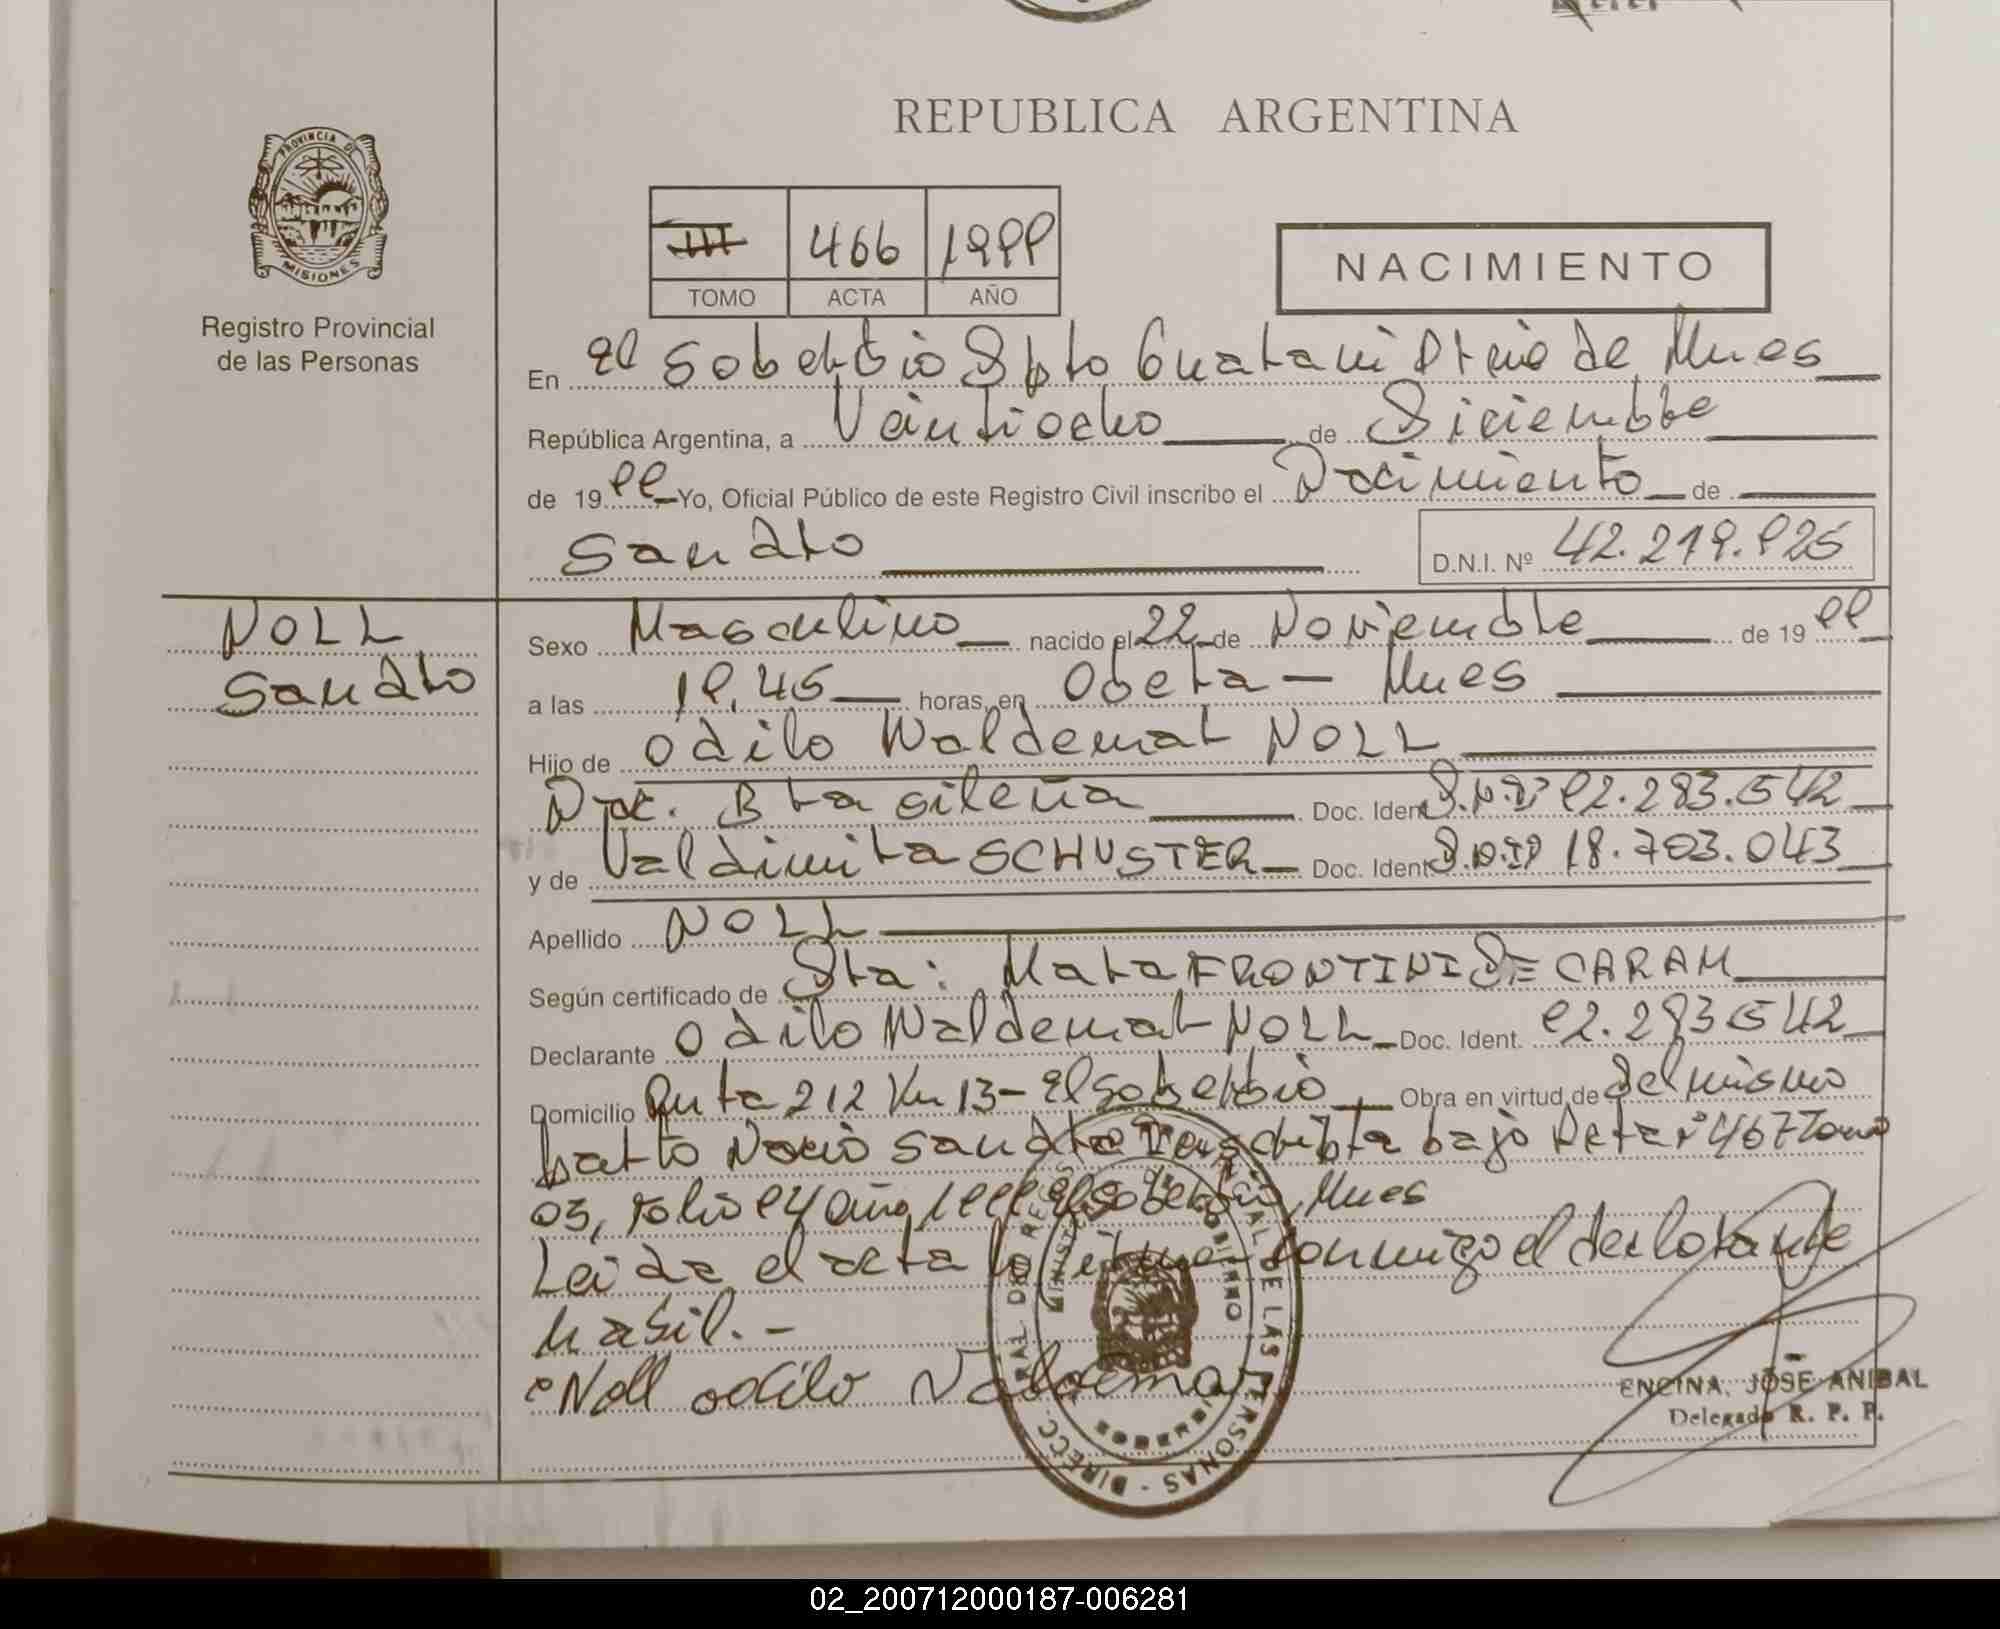 REPUBLICA ARGENTINA
PROVINCIA DE MISIONES
Registro Provincial
de las Personas
III 466 1999
TOMO ACTA AÑO
NACIMIENTO
En El Soberbio Dpto Guarani Pcia de Mnes
República Argentina, a Veintiocho de Diciembre
de 1999 Yo, Oficial Público de este Registro Civil inscribo el Nacimiento de
Sandro D.N.I. Nº 42.219.926
NOLL
Sandro
Sexo Masculino nacido el 22 de Noviembre de 1999
a las 19,45 horas, en Obera - Mnes
Hijo de Odilo Waldemar NOLL
Nac. Brasileña Doc. Ident D.N.I 92.283.542
y de Valdimira SCHUSTER Doc. Ident D.N.I 18.703.043
Apellido NOLL
Según certificado de Dra: Mara FRONTINI DE CARAM
Declarante Odilo Waldemar NOLL Doc. Ident. 92.283542
Domicilio Ruta 212 Km 13 - El Soberbio Obra en virtud de Del mismo
parto Nacio Sandra bajo Acta nº 467 Tomo
03, Folio 94 año 1999 El Soberbio, Mnes
Leida el acta la firma conmigo el declarante
habil. -
Noll odilo Valdemar
DIRECC. GRAL DEL REG. DE LAS PERSONAS
MINISTERIO DE GOBIERNO
ENCINA, JOSE ANIBAL
Delegado R. P. P.
02_200712000187-006281